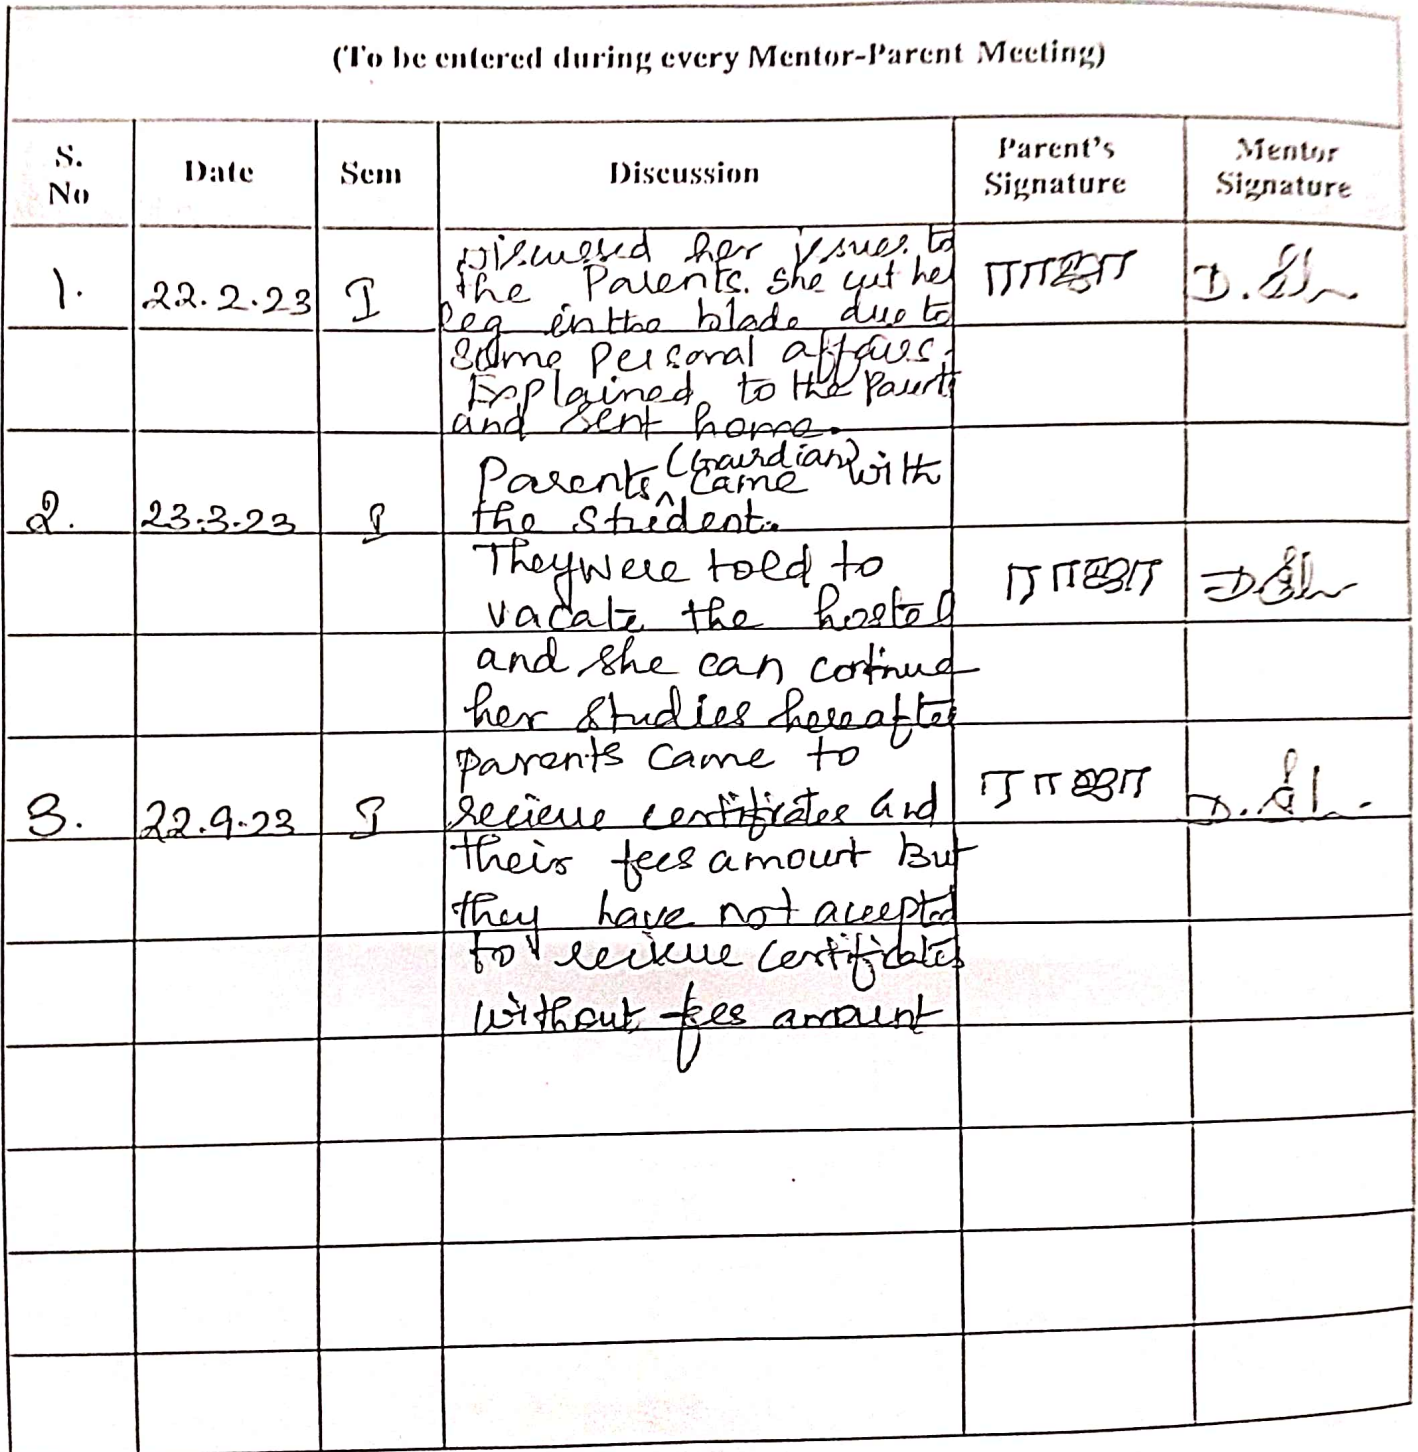 (To be entered during every Mentor-Parent Meeting)
S. No Date Sem Discussion Parent's Signature Mentor Signature
Discussed her issues to
the Parents. She cut her
1. 22.2.23 I leg in the blade due to ராஜா
some personal affairs.
Explained to the Parents
and sent home.
Parents (Gaurdian) came with
2. 23.3.23 I the student.
They were told to
vacate the hostel ராஜா
and she can continue
her studies hereafter
parents came to
3. 22.9.23 I recieve certificates and ராஜா
their fees amount But
they have not accepted
to recieve certificates
without fees amount